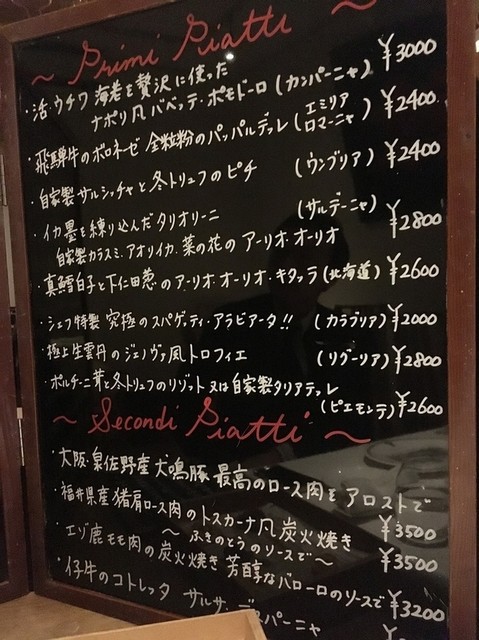 ~ Primi Piatti ~
・活・ウチワ海老を贅沢に使った
ナポリ風バベッテ・ポモドーロ(カンパーニャ) ¥3000
・飛騨牛のボロネーゼ 全粒粉のパッパルデッレ(エミリアロマーニャ) ¥2400
・自家製サルシッチャと冬トリュフのピチ (ウンブリア) ¥2400
・イカ墨を練り込んだタリオリーニ (サルデーニャ)
自家製カラスミ、アオリイカ、菜の花のアーリオ・オーリオ ¥2800
・真鱈白子と下仁田葱のアーリオ・オーリオ・キタッラ(北海道) ¥2600
・シェフ特製 究極のスパゲッティ・アラビアータ!! (カラブリア) ¥2000
・極上生雲丹のジェノヴァ風トロフィエ (リグーリア) ¥2800
・ポルチーニ茸と冬トリュフのリゾット 又は自家製タリアテッレ
(ピエモンテ) ¥2600
~ Secondi Piatti ~
・大阪・泉佐野産 犬鳴豚 最高のロース肉を アロストで
¥3500
・福井県産猪肩ロース肉のトスカーナ風炭火焼き
~ふきのとうのソースで~ ¥3500
・エゾ鹿モモ肉の炭火焼き 芳醇なバローロのソースで
¥3200
・仔牛のコトレッタ サルサ・
パーニャ ¥